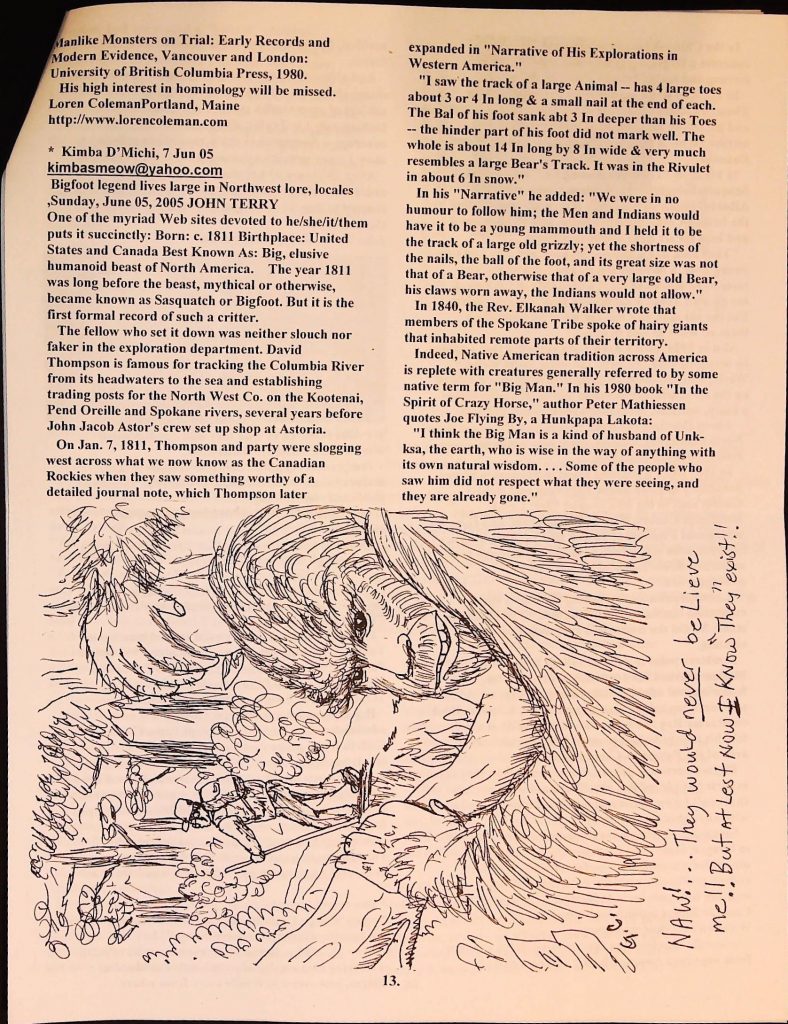 Manlike Monsters on Trial: Early Records and
Modern Evidence, Vancouver and London:
University of British Columbia Press, 1980.
His high interest in hominology will be missed.
Loren ColemanPortland, Maine
http://www.lorencoleman.com
* Kimba D'Michi, 7 Jun 05
kimbasmeow@yahoo.com
Bigfoot legend lives large in Northwest lore, locales
,Sunday, June 05, 2005 JOHN TERRY
One of the myriad Web sites devoted to he/she/it/them
puts it succinctly: Born: c. 1811 Birthplace: United
States and Canada Best Known As: Big, elusive
humanoid beast of North America. The year 1811
was long before the beast, mythical or otherwise,
became known as Sasquatch or Bigfoot. But it is the
first formal record of such a critter.
The fellow who set it down was neither slouch nor
faker in the exploration department. David
Thompson is famous for tracking the Columbia River
from its headwaters to the sea and establishing
trading posts for the North West Co. on the Kootenai,
Pend Oreille and Spokane rivers, several years before
John Jacob Astor's crew set up shop at Astoria.
On Jan. 7, 1811, Thompson and party were slogging
west across what we now know as the Canadian
Rockies when they saw something worthy of a
detailed journal note, which Thompson later
expanded in "Narrative of His Explorations in
Western America."
"I saw the track of a large Animal -- has 4 large toes
about 3 or 4 In long & a small nail at the end of each.
The Bal of his foot sank abt 3 In deeper than his Toes
-- the hinder part of his foot did not mark well. The
whole is about 14 In long by 8 In wide & very much
resembles a large Bear's Track. It was in the Rivulet
in about 6 In snow."
In his "Narrative" he added: "We were in no
humour to follow him; the Men and Indians would
have it to be a young mammouth and I held it to be
the track of a large old grizzly; yet the shortness of
the nails, the ball of the foot, and its great size was not
that of a Bear, otherwise that of a very large old Bear,
his claws worn away, the Indians would not allow."
In 1840, the Rev. Elkanah Walker wrote that
members of the Spokane Tribe spoke of hairy giants
that inhabited remote parts of their territory.
Indeed, Native American tradition across America
is replete with creatures generally referred to by some
native term for "Big Man." In his 1980 book "In the
Spirit of Crazy Horse," author Peter Mathiessen
quotes Joe Flying By, a Hunkpapa Lakota:
"I think the Big Man is a kind of husband of Unk-
ksa, the earth, who is wise in the way of anything with
its own natural wisdom. . . . Some of the people who
saw him did not respect what they were seeing, and
they are already gone."
NAW!... They would never beLieve
me!! But AtLest Now I KNow "They" exist!!
13.